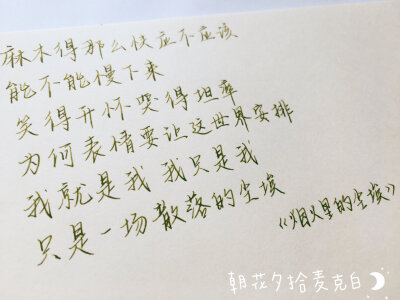 麻木得那么快应不应该
能不能慢下来
笑得开怀哭得坦率
为何表情要让这世界安排
我就是我 我只是我
只是一场散落的尘埃
《烟火里的尘埃》
朝花夕拾麦克白